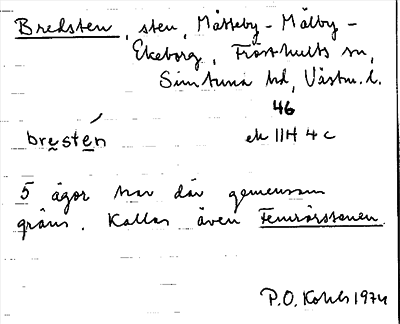 Bredsten, sten, Mätteby - Mälby -
Ekeborg, Frösthults sn,
Simtuna hd, Västm. l.
46
brestén ek 11H 4c
5 ägor har där gemensam
gräns. Kallas även Femrörsstenen.
P.O. Kohls 1974